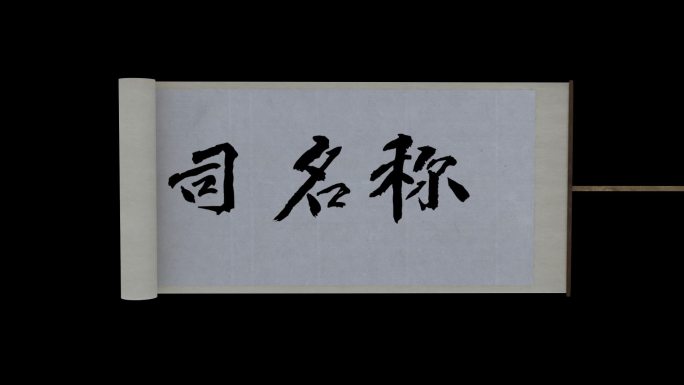 司名称